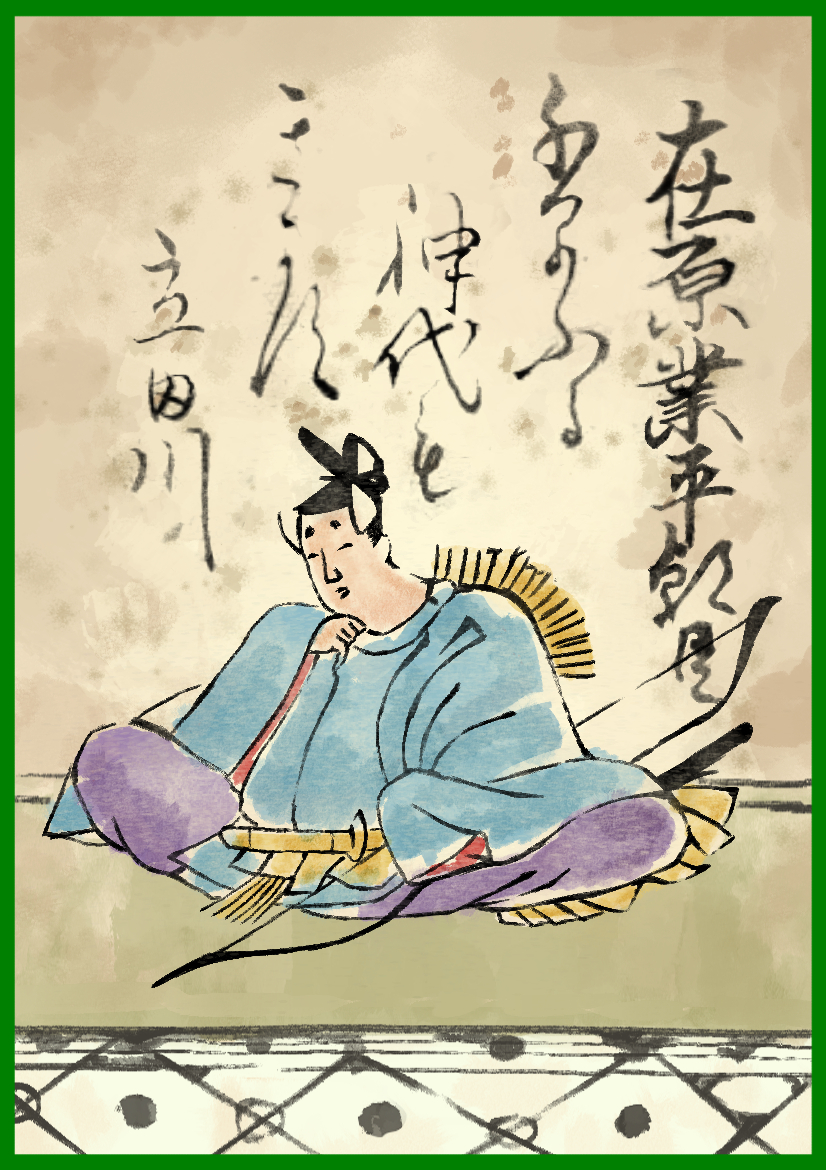 在原業平朝臣
ちはやふる
神代も
きかす
立田川